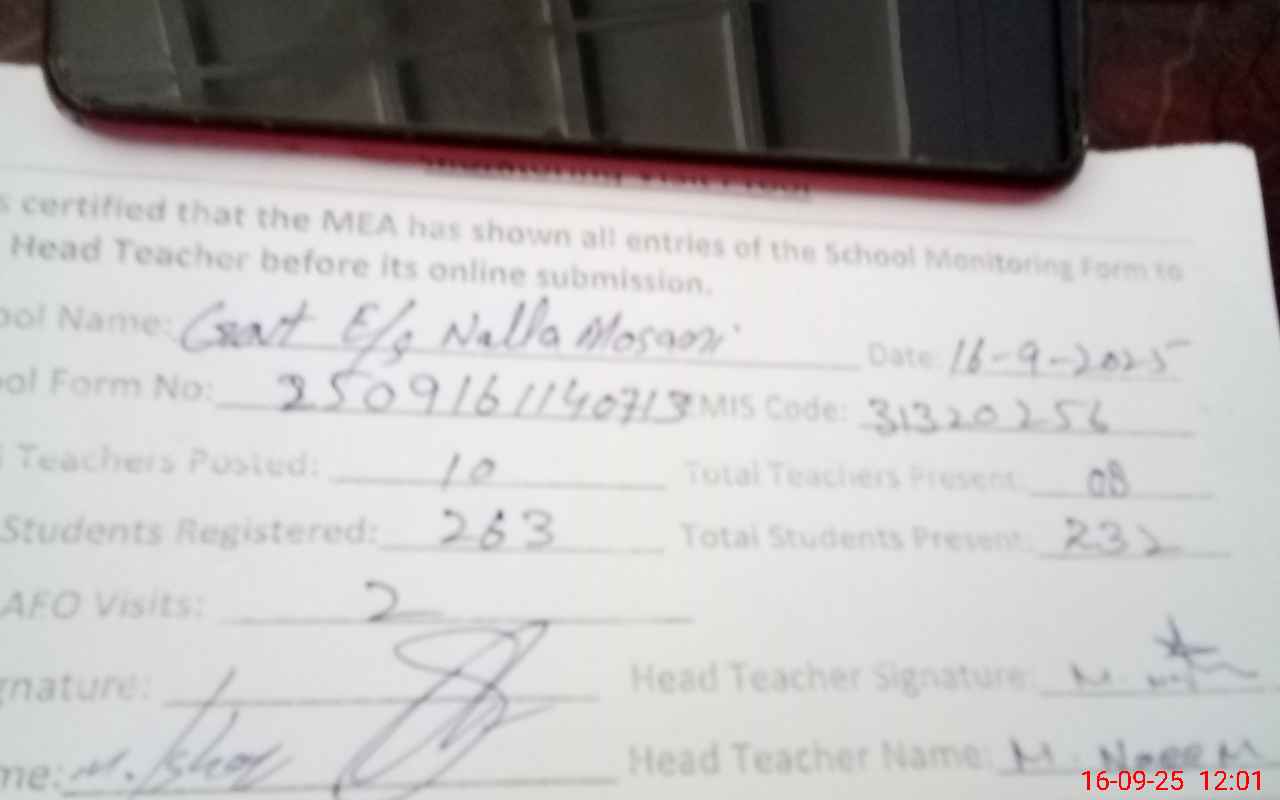 Monitoring Visit Proof
s certified that the MEA has shown all entries of the School Monitoring Form to
Head Teacher before its online submission.
ool Name: Govt E/s Nalla Mosaozi Date: 16-9-2025
ool Form No: 2509161140713 EMIS Code: 31320256
Teachers Posted: 10 Total Teachers Present: 08
Students Registered: 263 Total Students Present: 232
AEO Visits: 2
gnature: Head Teacher Signature:
me: M. Head Teacher Name: M. Naeem
16-09-25 12:01